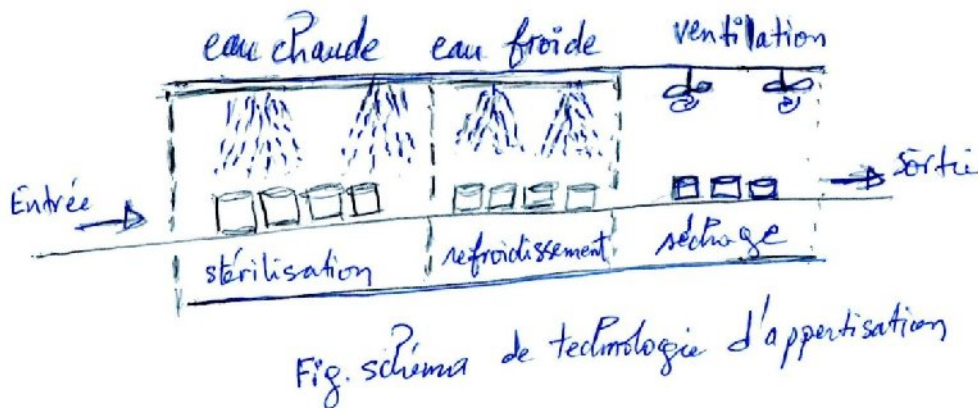 eau chaude eau froide ventilation
Entrée
Sortie
stérilisation refroidissement séchage
Fig. schéma de technologie d'appertisation